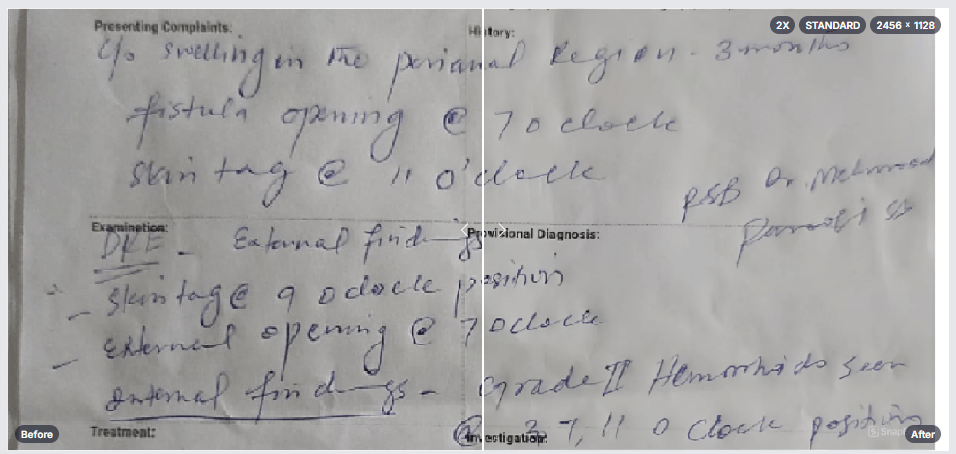 2X STANDARD 2456 × 1128
Presenting Complaints: History:
C/o swelling in the perianal Region - 3 months
fistula opening @ 7 o clock
skin tag @ 11 o'clock
PSB Dr. Mehmood
Examination: Provisional Diagnosis:
DRE - External findings
- skin tag @ 9 o clock position
- external opening @ 7 o clock
internal findings - grade II Hemorrhoids seen
@ 3, 7, 11 o clock position
Treatment: Investigation:
Before After